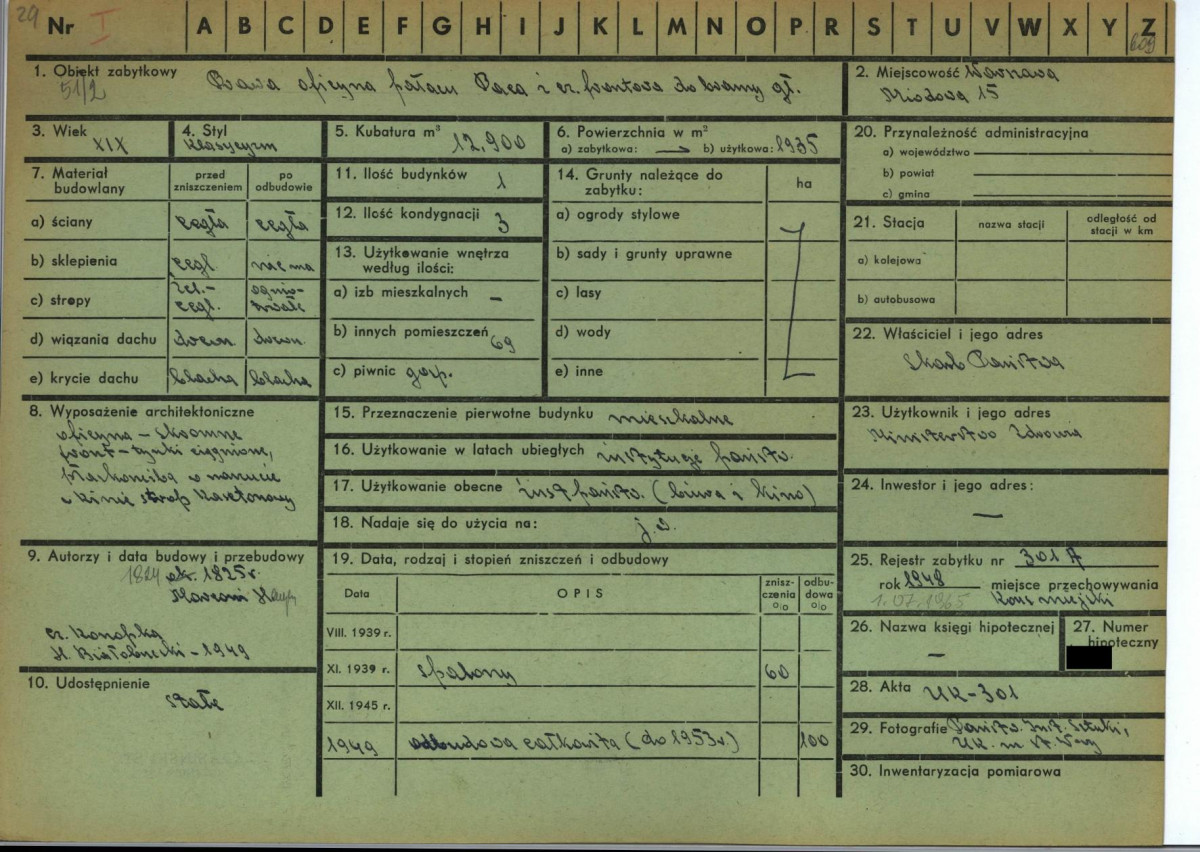 29 Nr I A B C D E F G H I J K L M N O P R S T U V W X Y Z
609
1. Obiekt zabytkowy
51/2
Prawa oficyna pałacu Paca i cz. frontowa do bramy gł.
2. Miejscowość Warszawa
Miodowa 15
3. Wiek
XIX
4. Styl
Klasycyzm
5. Kubatura m³ 12.900
6. Powierzchnia w m²
a) zabytkowa: — b) użytkowa: 1935
20. Przynależność administracyjna
a) województwo
b) powiat
c) gmina
7. Materiał budowlany
przed zniszczeniem
po odbudowie
a) ściany cegła cegła
b) sklepienia cegl. nie ma
c) stropy żel.-cegl. ognio-trwałe
d) wiązania dachu drewn. drewn.
e) krycie dachu blacha blacha
11. Ilość budynków 1
12. Ilość kondygnacji 3
13. Użytkowanie wnętrza
według ilości:
a) izb mieszkalnych –
b) innych pomieszczeń 69
c) piwnic gosp.
14. Grunty należące do
zabytku:
ha
a) ogrody stylowe
b) sady i grunty uprawne
c) lasy
d) wody
e) inne
21. Stacja
nazwa stacji
odległość od
stacji w km
a) kolejowa
b) autobusowa
22. Właściciel i jego adres
Skarb Państwa
8. Wyposażenie architektoniczne
oficyna – skromne
front – tynki ciągnione,
płaskorzeźba w
w kinie strop kasetonowy
15. Przeznaczenie pierwotne budynku mieszkalne
16. Użytkowanie w latach ubiegłych instytucje państw.
17. Użytkowanie obecne inst. państw. (biura i kino)
18. Nadaje się do użycia na: j.w.
23. Użytkownik i jego adres
Ministerstwo Zdrowia
24. Inwestor i jego adres:
—
9. Autorzy i data budowy i przebudowy
1824 ok. 1825 r.
Marconi H
cz. Konopka
H. Białobrzeski – 1949
10. Udostępnienie
stałe
19. Data, rodzaj i stopień zniszczeń i odbudowy
Data
OPIS
znisz-
czenia
%
odbu-
dowa
%
VIII. 1939 r.
XI. 1939 r. spalony 60
XII. 1945 r.
1949 odbudowa całkowita (do 1953 r.) 100
25. Rejestr zabytku nr 301 A
rok 1948 miejsce przechowywania
1.07.1965 Kons. miejski
26. Nazwa księgi hipotecznej
–
27. Numer
hipoteczny
28. Akta UK-301
29. Fotografie Państw. Inst. Sztuki,
UK. m. st. W-wy
30. Inwentaryzacja pomiarowa